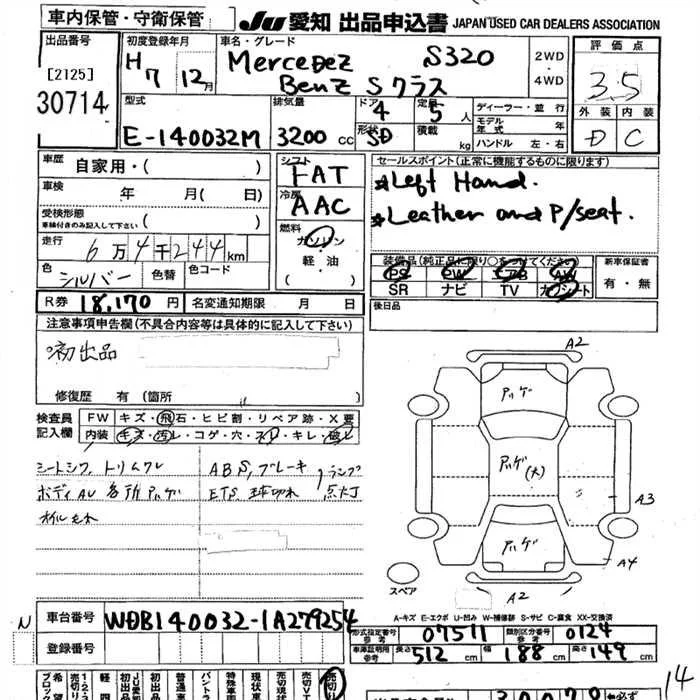 車内保管・守衛保管
JU 愛知 出品申込書 JAPAN USED CAR DEALERS ASSOCIATION
出品番号
[2125]
30714
初度登録年月
H7 12月
車名・グレード
Mercedez S320
Benz Sクラス
2WD
4WD
評価点
3.5
外装 内装
D C
型式
E-140032M
排気量
3200 cc
ドア
4
定員
5 人
形状
SD
積載
kg
ディーラー・並行
モデル年式 年
ハンドル 左・右
車歴 自家用・( )
車検 年 月( 日)
受検形態
車検付きのみ記入して下さい ( )
走行 6万4千244km
色 シルバー 色替 色コード
シフト
FAT
冷房
AAC
燃料
ガソリン
軽油
( )
セールスポイント(正常に機能するものに限ります)
*Left Hand.
*Leather and P/seat.
装備品(純正品に限り○をつけてください)
PS PW エアB AW
SR ナビ TV カワシート
新車保証書
有・無
後日品
R券 18,170円 名変通知期限 月 日
注意事項申告欄(不具合内容等は具体的に記入して下さい)
初出品
修復歴 有(箇所
検査員記入欄
FW キズ・飛石・ヒビ割・リペア跡・X要
内装 キズ・汚レ・コゲ・穴・スレ・キレ・破レ
シートシワ、トリムワレ
ABS、ブレーキ
ランプ点灯
ボディAU各所アハゲ
ETS 球切れ
オイルモレ
A2
アハゲ
アハゲ(大)
アハゲ
A3
A4
A2
スペア
A-キズ E-エクボ U-凹み W-補修跡 S-サビ C-腐食 XX-交換済
N
車台番号 WDB140032-1A279254
登録番号
形式指定番号参考 07511 類別区分番号参考 0124
車庫証明用参考 長さ 512cm 幅 188cm 高さ 149cm
14